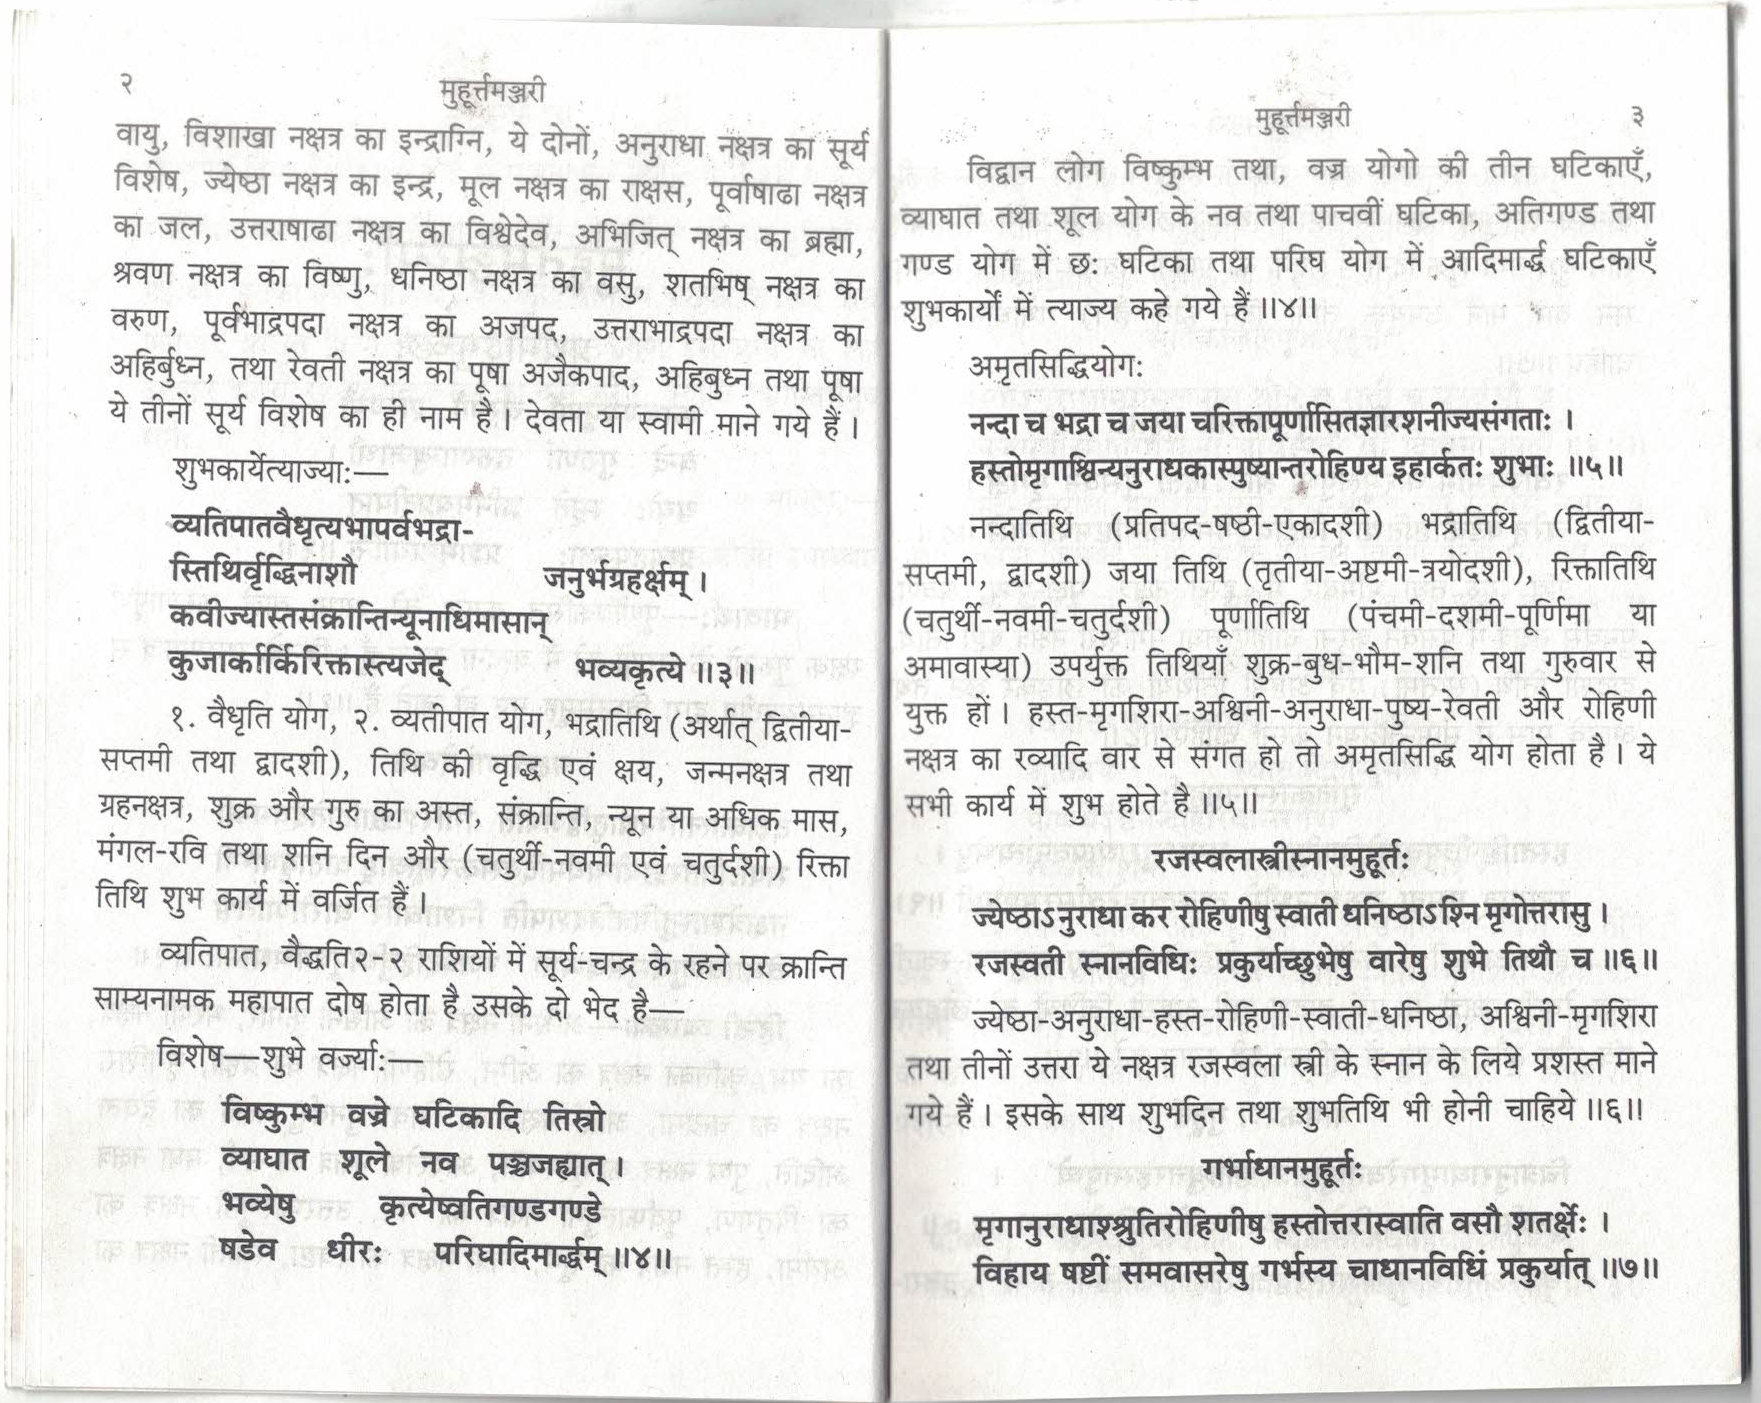 २
मुहूर्त्तमञ्जरी
वायु, विशाखा नक्षत्र का इन्द्राग्नि, ये दोनों, अनुराधा नक्षत्र का सूर्य
विशेष, ज्येष्ठा नक्षत्र का इन्द्र, मूल नक्षत्र का राक्षस, पूर्वाषाढा नक्षत्र
का जल, उत्तराषाढा नक्षत्र का विश्वेदेव, अभिजित् नक्षत्र का ब्रह्मा,
श्रवण नक्षत्र का विष्णु, धनिष्ठा नक्षत्र का वसु, शतभिष् नक्षत्र का
वरुण, पूर्वभाद्रपदा नक्षत्र का अजपद, उत्तराभाद्रपदा नक्षत्र का
अहिर्बुध्न, तथा रेवती नक्षत्र का पूषा अजैकपाद, अहिबुध्न तथा पूषा
ये तीनों सूर्य विशेष का ही नाम है। देवता या स्वामी माने गये हैं।
शुभकार्येत्याज्याः—
व्यतिपातवैधृत्यभापर्वभद्रा-
स्तिथिर्वृद्धिनाशौ जनुर्भग्रहर्क्षम्।
कवीज्यास्तसंक्रान्तिन्यूनाधिमासान्
कुजार्कार्किरिक्तास्त्यजेद् भव्यकृत्ये॥३॥
१. वैधृति योग, २. व्यतीपात योग, भद्रातिथि (अर्थात् द्वितीया-
सप्तमी तथा द्वादशी), तिथि की वृद्धि एवं क्षय, जन्मनक्षत्र तथा
ग्रहनक्षत्र, शुक्र और गुरु का अस्त, संक्रान्ति, न्यून या अधिक मास,
मंगल-रवि तथा शनि दिन और (चतुर्थी-नवमी एवं चतुर्दशी) रिक्ता
तिथि शुभ कार्य में वर्जित हैं।
व्यतिपात, वैद्धति२-२ राशियों में सूर्य-चन्द्र के रहने पर क्रान्ति
साम्यनामक महापात दोष होता है उसके दो भेद है—
विशेष—शुभे वर्ज्याः—
विष्कुम्भ वज्रे घटिकादि तिस्त्रो
व्याघात शूले नव पञ्चजह्यात्।
भव्येषु कृत्येष्वतिगण्डगण्डे
षडेव धीरः परिघादिमार्द्धम्॥४॥
मुहूर्त्तमञ्जरी
३
विद्वान लोग विष्कुम्भ तथा, वज्र योगो की तीन घटिकाएँ,
व्याघात तथा शूल योग के नव तथा पाचवीं घटिका, अतिगण्ड तथा
गण्ड योग में छः घटिका तथा परिघ योग में आदिमार्द्ध घटिकाएँ
शुभकार्यों में त्याज्य कहे गये हैं॥४॥
अमृतसिद्धियोगः
नन्दा च भद्रा च जया चरिक्तापूर्णासितज्ञारशनीज्यसंगताः।
हस्तोमृगाश्विन्यनुराधकास्पुष्यान्तरोहिण्य इहार्कतः शुभाः॥५॥
नन्दातिथि (प्रतिपद-षष्ठी-एकादशी) भद्रातिथि (द्वितीया-
सप्तमी, द्वादशी) जया तिथि (तृतीया-अष्टमी-त्रयोदशी), रिक्तातिथि
(चतुर्थी-नवमी-चतुर्दशी) पूर्णातिथि (पंचमी-दशमी-पूर्णिमा या
अमावास्या) उपर्युक्त तिथियाँ शुक्र-बुध-भौम-शनि तथा गुरुवार से
युक्त हों। हस्त-मृगशिरा-अश्विनी-अनुराधा-पुष्य-रेवती और रोहिणी
नक्षत्र का रव्यादि वार से संगत हो तो अमृतसिद्धि योग होता है। ये
सभी कार्य में शुभ होते है॥५॥
रजस्वलास्त्रीस्नानमुहूर्तः
ज्येष्ठाऽनुराधा कर रोहिणीषु स्वाती धनिष्ठाऽश्नि मृगोत्तरासु।
रजस्वती स्नानविधिः प्रकुर्याच्छुभेषु वारेषु शुभे तिथौ च॥६॥
ज्येष्ठा-अनुराधा-हस्त-रोहिणी-स्वाती-धनिष्ठा, अश्विनी-मृगशिरा
तथा तीनों उत्तरा ये नक्षत्र रजस्वला स्त्री के स्नान के लिये प्रशस्त माने
गये हैं। इसके साथ शुभदिन तथा शुभतिथि भी होनी चाहिये॥६॥
गर्भाधानमुहूर्तः
मृगानुराधाश्श्रुतिरोहिणीषु हस्तोत्तरास्वाति वसौ शतर्क्षेः।
विहाय षष्टीं समवासरेषु गर्भस्य चाधानविधिं प्रकुर्यात्॥७॥